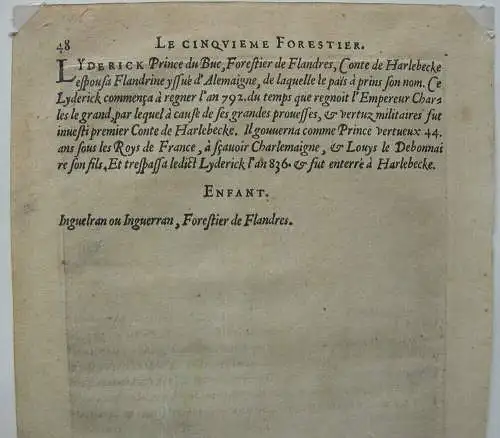 48 LE CINQVIEME FORESTIER.
LYDERICK Prince du Buc, Foreſtier de Flandres, Conte de Harlebecke
eſpouſa Flandrine yſſuë d'Alemaigne, de laquelle le païs à prins ſon nom. Ce
Lyderick commença à regner l'an 792. du temps que regnoit l'Empereur Char-
les le grand, par lequel à cauſe de ſes grandes proueſſes, & vertuz militaires fut
inueſti premier Conte de Harlebecke. Il gouuerna comme Prince vertueux 44.
ans ſous les Roys de France, à ſçauoir Charlemaigne, & Louys le Debonnai
re ſon fils. Et treſpaſſa ledict Lyderick l'an 836. & fut enterré à Harlebecke.
ENFANT.
Inguelran ou Inguerran, Foreſtier de Flandres.